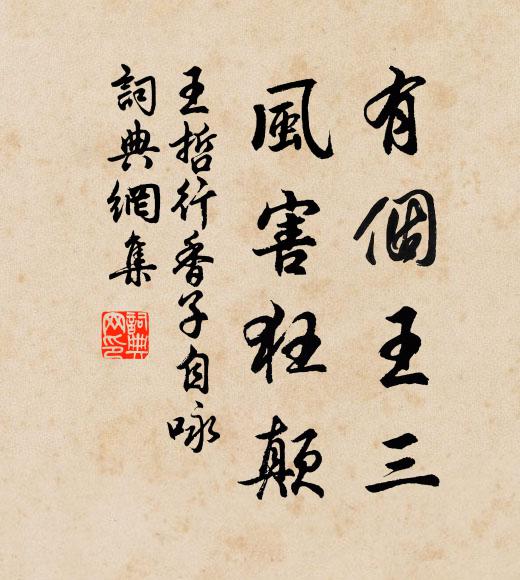 有個王三
風害狂顛
王哲行香子自咏
詞典網集
詞典網印